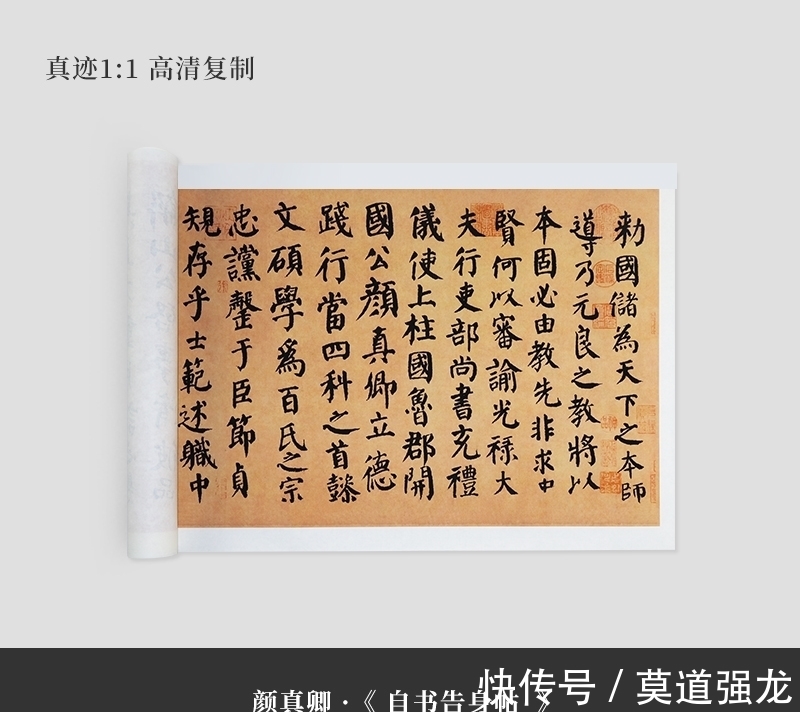 真迹1:1 高清复制
勑國儲為天下之本師
導乃元良之教將以
本固必由教先非求中
賢何以審諭光祿大
夫行吏部尚書充禮
儀使上柱國魯郡開
國公顏真卿立德
踐行當四科之首懿
文碩學爲百氏之宗
忠讜罄于臣節貞
規存乎士範述職中
颜真卿·《自书告身帖》
快传号 / 莫道强龙